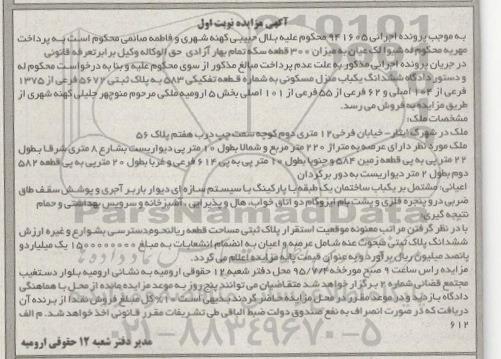 آگهی مزایده نوبت اول
به موجب پرونده اجرائی ۹۴۱۶۰۵ محکوم علیه بلال حبیبی کهنه شهری و فاطمه صانمی محکوم است به پرداخت
مهریه محکوم له شیوا لک عیان به میزان ۳۰۰ قطعه سکه تمام بهار آزادی حق الوکاله وکیل برابر تعرفه قانونی
در جریان پرونده اجرایی مذکور به علت عدم پرداخت مبالغ مذکور از سوی محکوم علیه و بنا به درخواست محکوم له
و دستور دادگاه ششدانگ یکباب منزل مسکونی به شماره قطعه تفکیکی ۵۸۳ به پلاک ثبتی ۵۶۷۲ فرعی از ۱۳۷۵
فرعی از ۱۰۴ اصلی و ۶۲ فرعی از ۵۵ فرعی از ۱۰۱ اصلی بخش ۵ ارومیه ملکی مرحوم منوچهر جلیلی کهنه شهری از
طریق مزایده به فروش می رسد.
مشخصات ملک:
ملک در شهرک ایثار- خیابان فرخی ۱۲ متری دوم کوچه سمت چپ درب هفتم پلاک ۵۶
ملک مورد نظر دارای عرصه به متراژ ۲۲۰ متر مربع و شمالا بطول ۱۰ متر پی دیواریست بشارع ۸ متری شرقا بطول
۲۲ متر پی به پی قطعه زمین ۵۸۴ و جنوبا بطول ۱۰ متر پی به پی ۶۱۴ فرعی و غربا بطول ۲۰ متر پی به پی قطعه ۵۸۲
دوم بطول ۲ متر دیواریست به دور برگردان
اعیانی: مشتمل بر یکباب ساختمان یک طبقه با پارکینگ با سیستم سازه ای دیوار باربر آجری و پوشش سقف طاق
ضربی درو پنجره فلزی و پشت بام ایزوگام دو اتاق خواب، هال و پذیرایی، آشپزخانه و سرویس بهداشتی و حمام
نتیجه گیری:
با در نظر گرفتن مراتب معنونه موقعیت استقرار پلاک ثبتی مساحت قطعه زیالنحوه دسترسی بشوارع و غیره ارزش
ششدانگ پلاک ثبتی مبحوث عنه شامل عرصه و اعیان به انضمام انشعابات به مبلغ ۱۵۰۰۰۰۰۰۰۰ یک میلیارد و
پانصد میلیون ریال برآورد و به عنوان قیمت پایه مزایده اعلام می گردد.
مزایده راس ساعت ۹ صبح مورخه ۹۵/۷/۴ محل دفتر شعبه ۱۲ حقوقی ارومیه به نشانی ارومیه بلوار دستغیب
مجتمع قضائی شماره ۲ برگزار خواهد شد متقاضیان می توانند پنج روز به موعد مزایده مانده از محل با هماهنگی
دادگاه بازدید و در موعد مقرر در محل مزایده حاضر گردند بدیهی است ۱۰٪ کل مبلغ فروش نقدا از برنده آن
دریافت که در صورت انصراف به نفع صندوق دولت ضبط الباقی طی تشریفات مقرر قانونی اخذ خواهد شد. م الف
۶۱۲
مدیر دفتر شعبه ۱۲ حقوقی ارومیه
ParsNamadData
۰۲۱-۸۸۳۴۹۶۷۰-۵